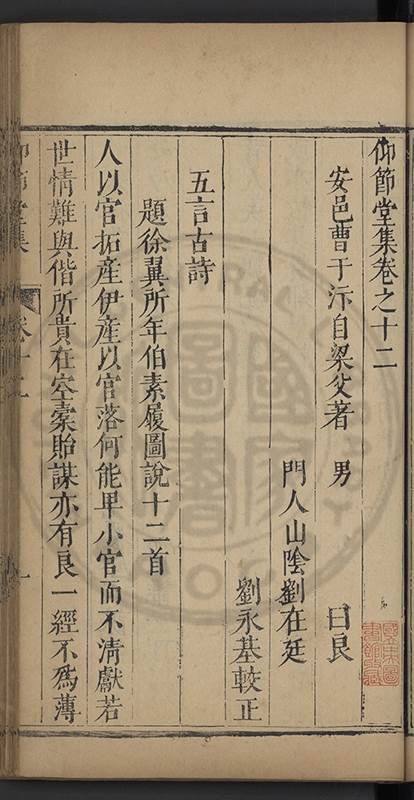 仰節堂集卷之十二
安邑曹于汴自梁父著　男　曰良
門人山陰劉在廷
劉永基較正
五言古詩
題徐翼所年伯素履圖說十二首
人以官拓産伊産以官落何能卑小官而不清獻若
世情難與偕所貴在空橐貽謀亦有良一經不為薄
仰節堂集　卷十二　一